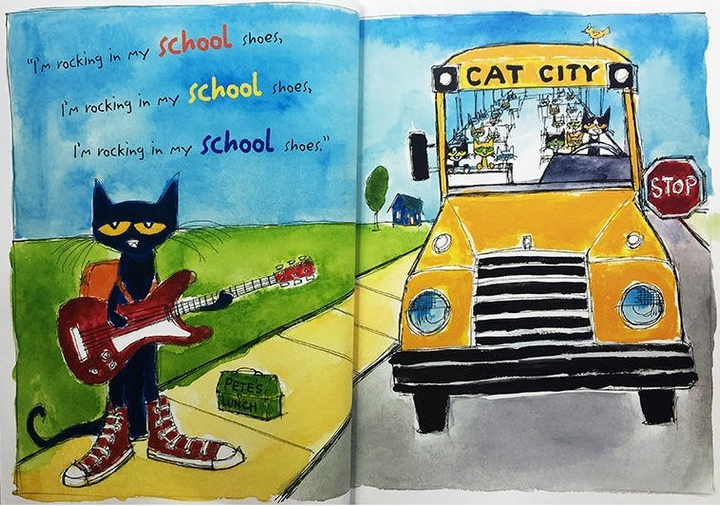 "I'm rocking in my school shoes,
I'm rocking in my school shoes,
I'm rocking in my school shoes."
PETE'S
LUNCH
CAT CITY
STOP